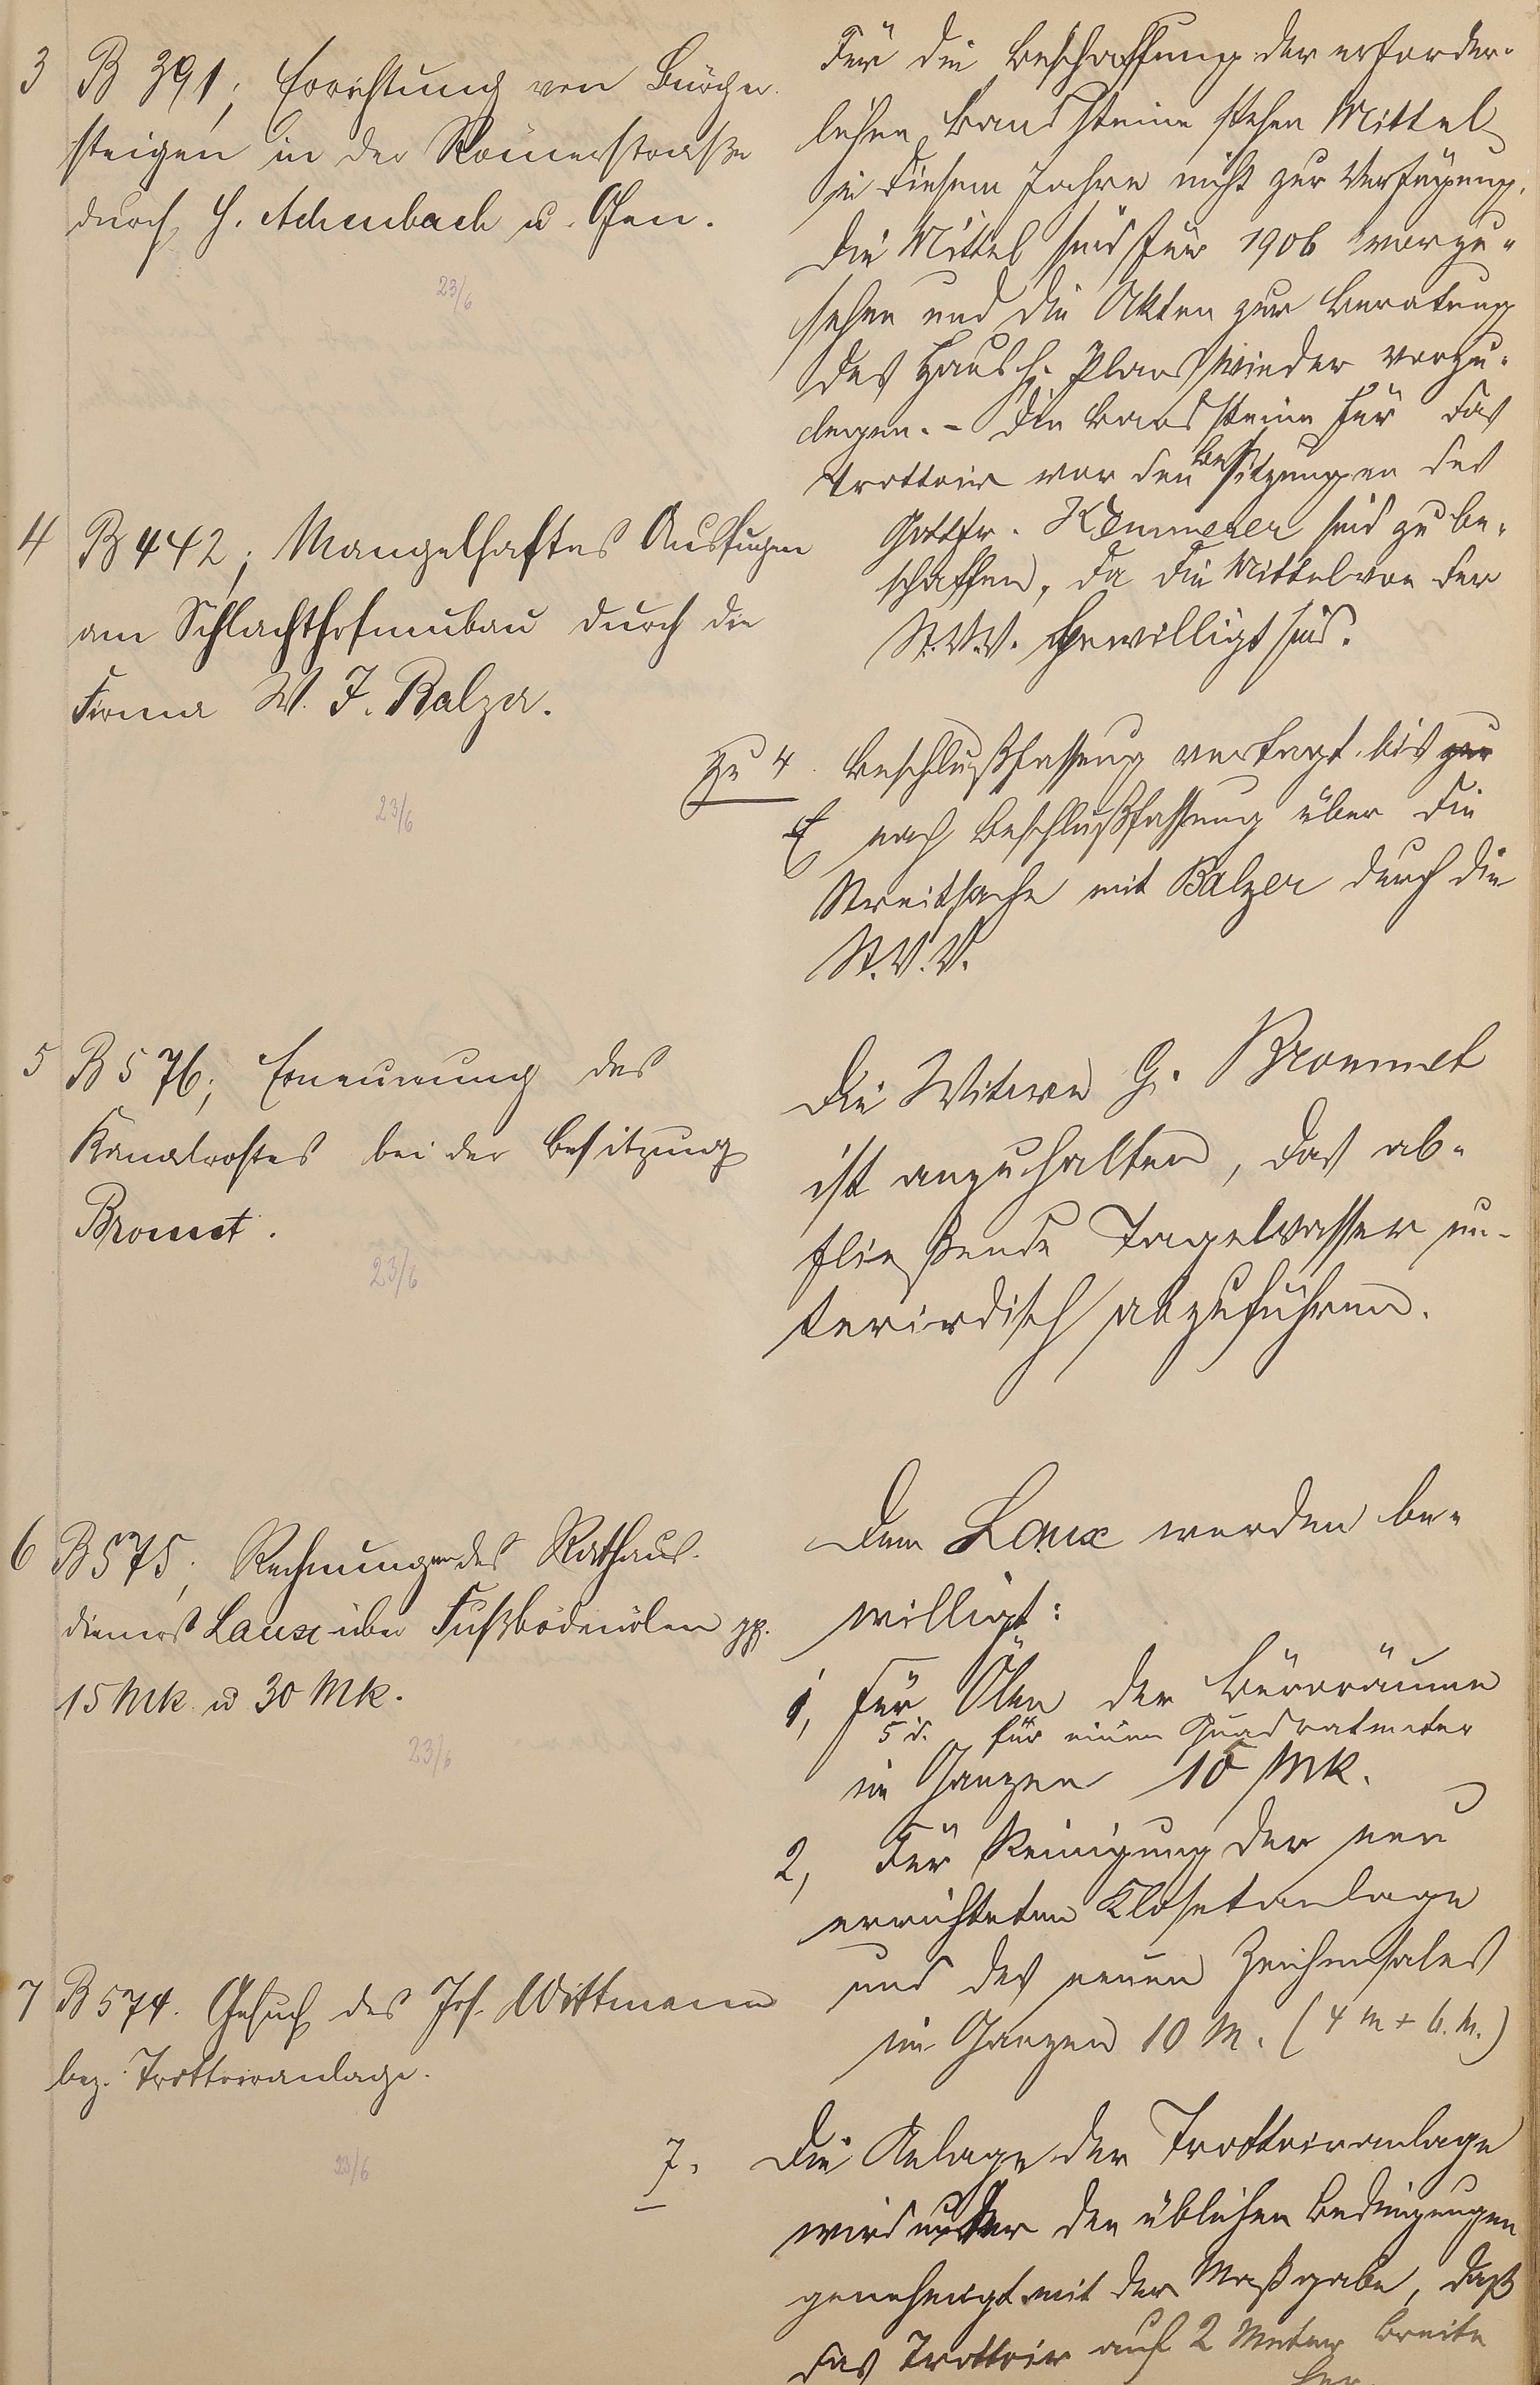 3 B 391; Errichtung von Bürger-
steigen in der Römerstraße
durch H. Achenbach u. Gen.
23/6
Für die Beschaffung der erforder-
lichen Bordsteine stehen Mittel
in diesem Jahre nicht zur Verfügung.
Die Mittel sind für 1906 vorzu-
sehen und die Akten zur Beratung
des Haush. Plans wieder vorzu-
legen. - Die Bordsteine für das
Trottoir vor den Besitzungen des
Gottfr. Kemmerer sind zu be-
schaffen, da die Mittel von der
St.V.V. bewilligt sind.
4 B 442; Mangelhaftes Ausfugen
am Schlachthofneubau durch die
Firma W. J. Balzer.
23/6
Zu 4. Beschlußfassung vertagt bis zur
nach Beschlußfassung über die
Streitsache mit Balzer durch die
St.V.V.
5 B 576; Erneuerung des
Kanalrostes bei der Besitzung
Bromet.
23/6
Die Witwe G. Brommet
ist anzuhalten, das ab-
fließende Tagewasser un-
terirdisch abzuführen.
6 B 575; Rechnungen des Rathaus-
dieners Laux über Fußbödenölen pp.
15 Mk. u 30 Mk.
23/6
Dem Laux werden be-
willigt:
1, Für Ölen der Büroräume
5 d. für einen Quadratmeter
im Ganzen 10 Mk.
2, Für Reinigung der neu
errichteten Klosetanlage
und des neuen Zeichensales
im Ganzen 10 M. (4 M + 6. M.)
7 B 574. Gesuch des Jos. Wittmann
bez. Trottoiranlage.
23/6
7. Die Anlage der Trottoiranlage
wird unter den üblichen Bedingungen
genehmigt mit der Maßgabe, daß
das Trottoir auf 2 Meter Breite
her